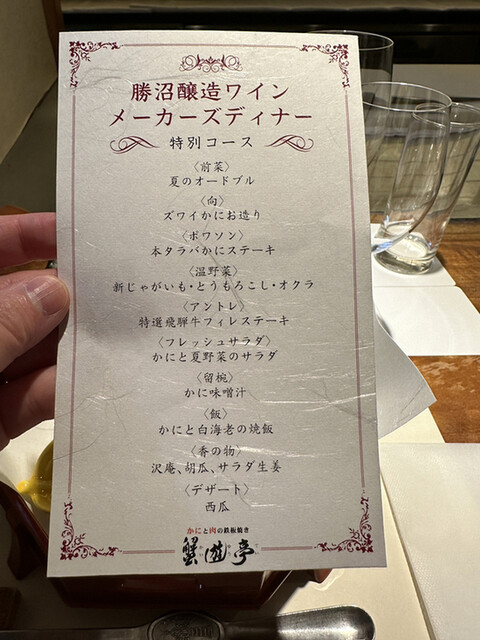 勝沼醸造ワイン
メーカーズディナー
特別コース
〈前菜〉
夏のオードブル
〈向〉
ズワイかにお造り
〈ポワソン〉
本タラバかにステーキ
〈温野菜〉
新じゃがいも・とうもろこし・オクラ
〈アントレ〉
特選飛騨牛フィレステーキ
〈フレッシュサラダ〉
かにと夏野菜のサラダ
〈留椀〉
かに味噌汁
〈飯〉
かにと白海老の焼飯
〈香の物〉
沢庵、胡瓜、サラダ生姜
〈デザート〉
西瓜
かにと肉の鉄板焼き
蟹遊亭